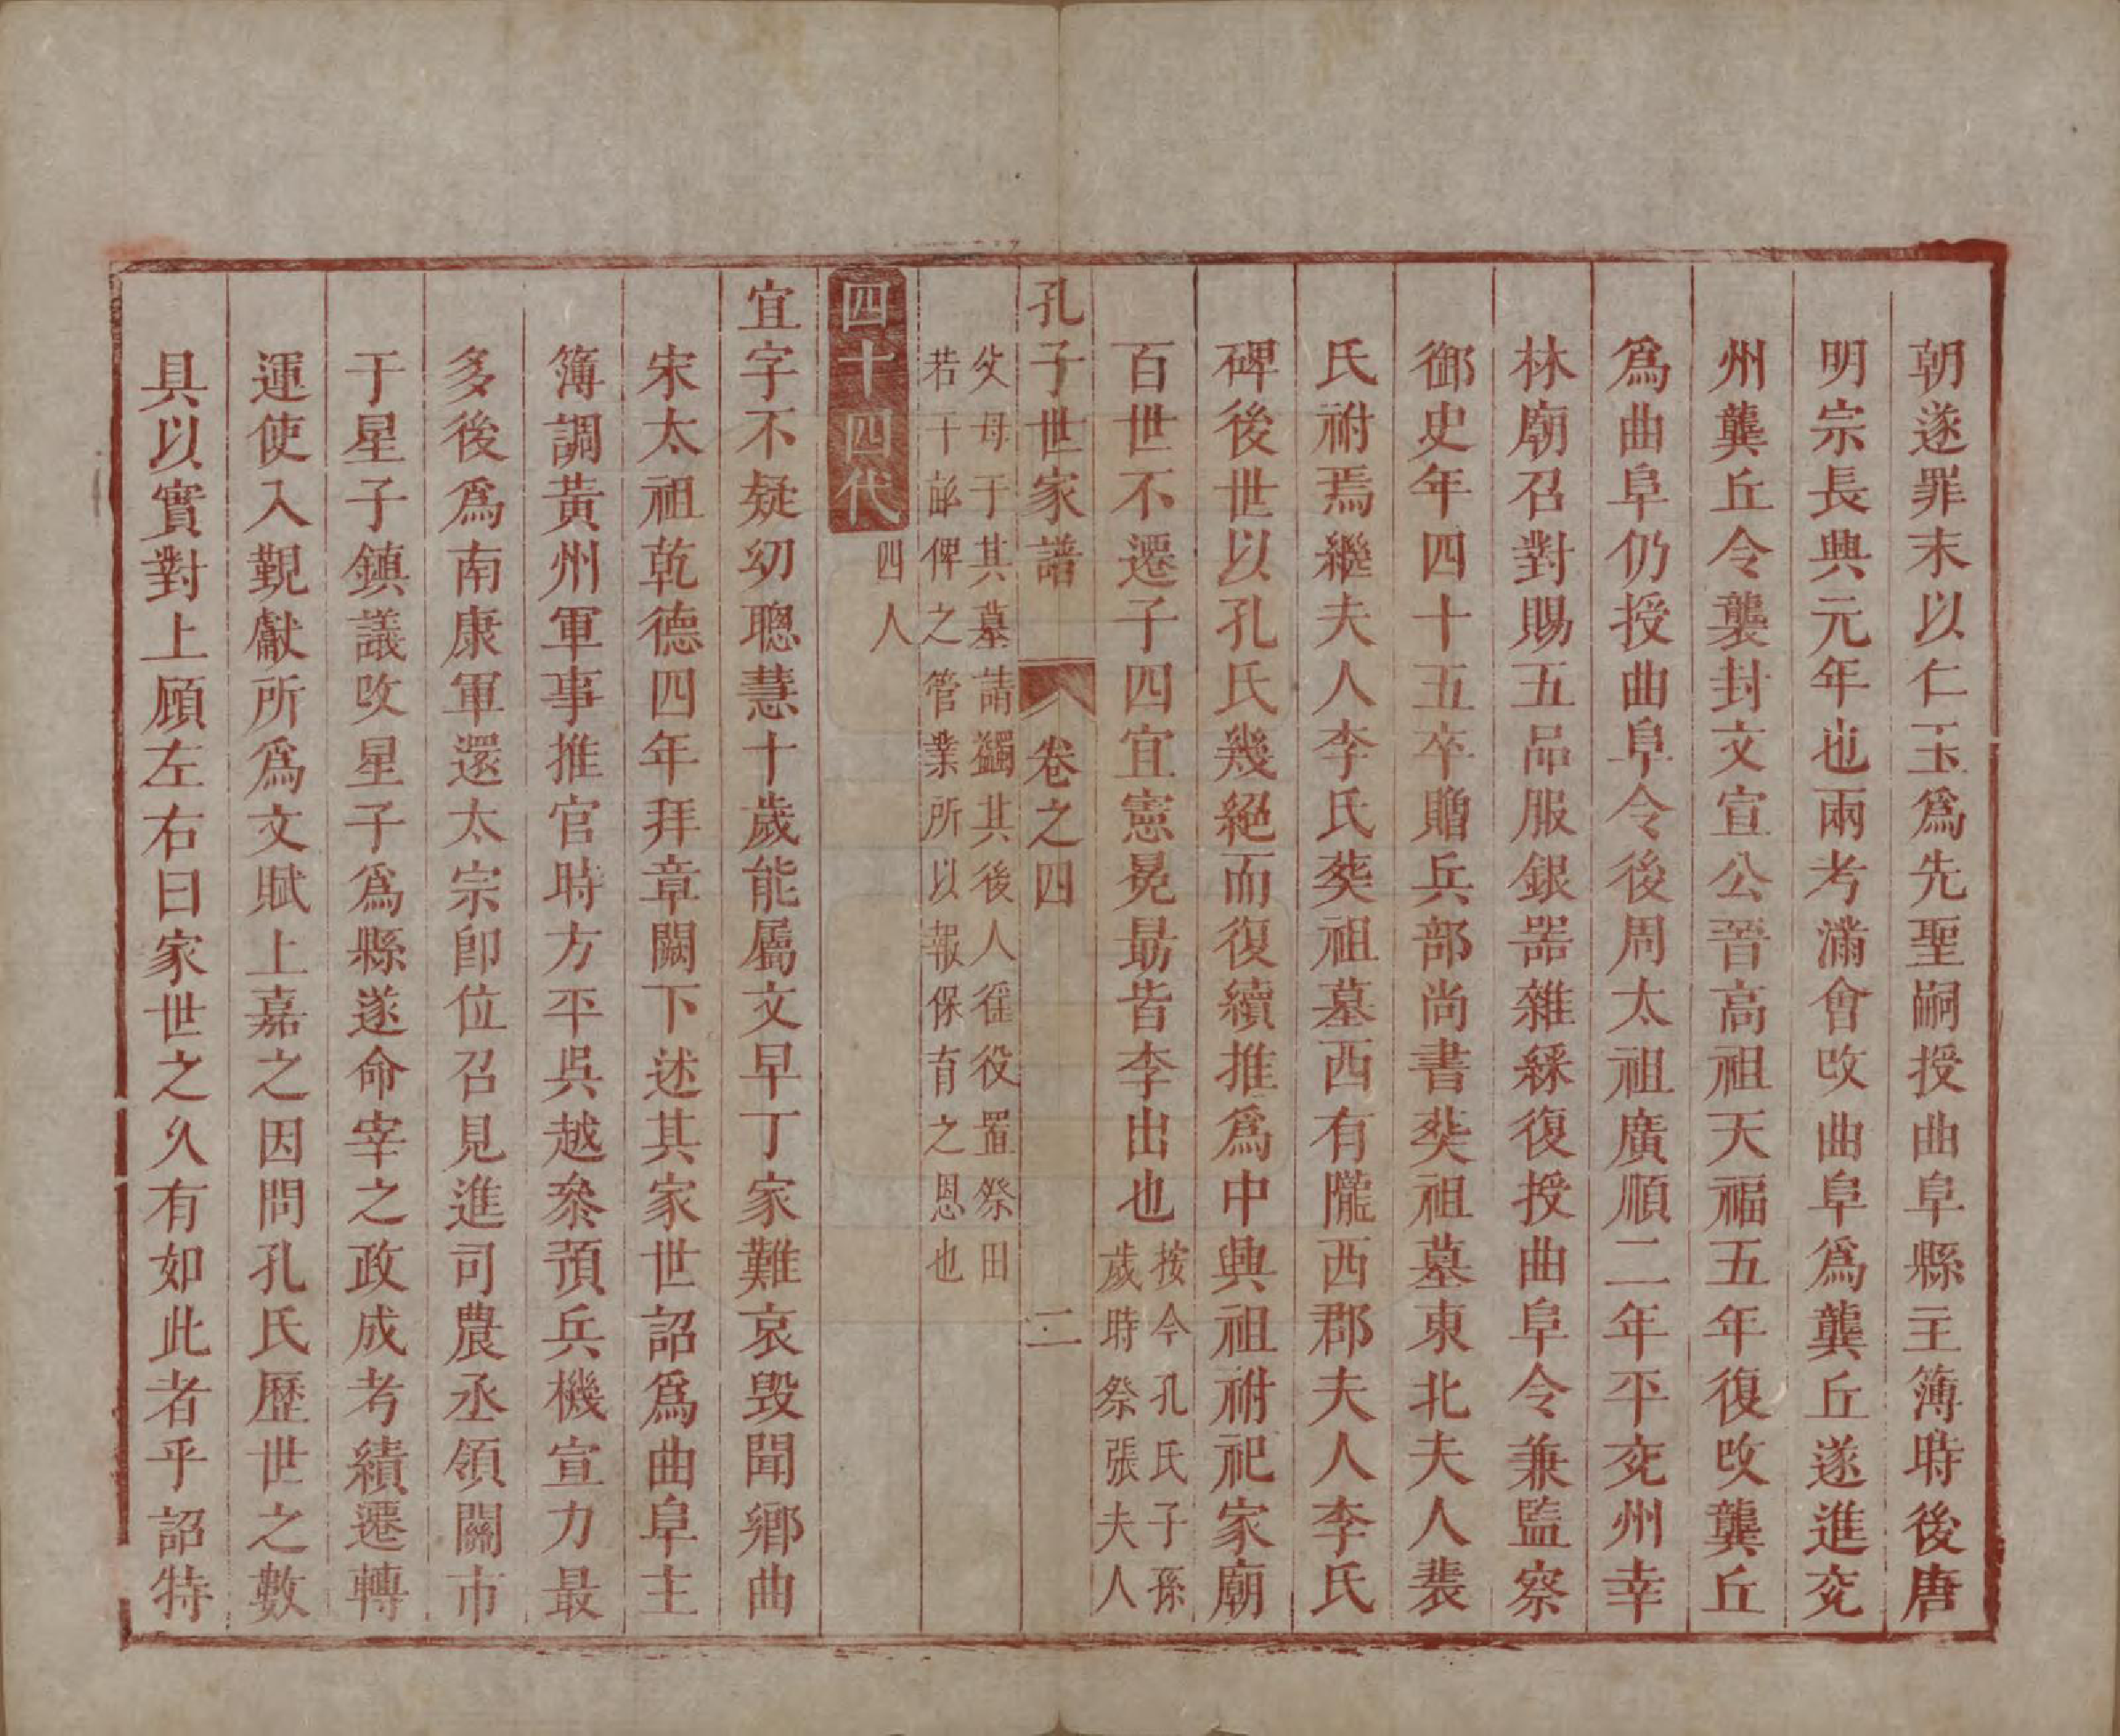 朝遂罪末以仁玉爲先聖嗣授曲阜縣主簿時後唐
明宗長興元年也兩考滿會改曲阜爲龔丘遂進兗
州龔丘令襲封文宣公晉高祖天福五年復改龔丘
爲曲阜仍授曲阜令後周太祖廣順二年平兗州幸
林廟召對賜五品服銀器雜綵復授曲阜令兼監察
御史年四十五卒贈兵部尚書葬祖墓東北夫人裴
氏祔焉繼夫人李氏葬祖墓西有隴西郡夫人李氏
碑後世以孔氏幾絕而復續推爲中興祖祔祀家廟
百世不遷子四宜憲冕勗皆李出也按今孔氏子孫
歲時祭張夫人
孔子世家譜 卷之四 二
父母于其墓請蠲其後人徭役置祭田
若干畝俾之管業所以報保育之恩也
四十四代四人
宜字不疑幼聰慧十歲能屬文早丁家難哀毀聞鄉曲
宋太祖乾德四年拜章闕下述其家世詔爲曲阜主
簿調黃州軍事推官時方平吳越叅預兵機宣力最
多後爲南康軍還太宗卽位召見進司農丞領關市
于星子鎮議改星子爲縣遂命宰之政成考績遷轉
運使入覲獻所爲文賦上嘉之因問孔氏歷世之數
具以實對上顧左右曰家世之久有如此者乎詔特